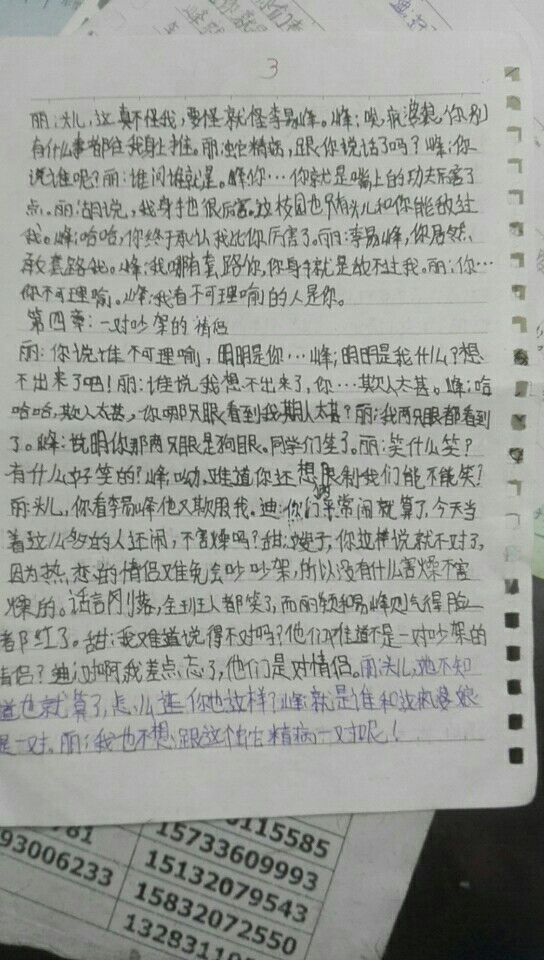 3
丽:头儿,这真不怪我,要怪就怪李易峰。峰:喂,疯婆娘,你别
有什么事都往我身上推。丽:蛇精病,跟你说话了吗?峰:你
说谁呢?丽:谁问谁就是。峰:你…你就是嘴上的功夫厉害了
点。丽:胡说,我身手也很厉害。这校园也只有头儿和你能敌过
我。峰:哈哈,你终于承认我比你厉害了。丽:李易峰,你居然
敢套路我。峰:我哪有套路你,你身手就是敌不过我。丽:你…
你不可理喻。峰:我看不可理喻的人是你。
第四章:一对吵架的情侣
丽:你说谁不可理喻,明明是你…峰:明明是我什么?想
不出来了吧!丽:谁说我想不出来了,你…欺人太甚。峰:哈
哈哈,欺人太甚,你哪只眼看到我欺人太甚?丽:我两只眼都看到
了。峰:说明你那两只眼是狗眼。同学们笑了。丽:笑什么笑?
有什么好笑的?峰:呦,难道你还想限制我们能不能笑?
丽:头儿,你看李易峰他又欺服我。迪:你们平常闹就算了,今天当
着这么多的人还闹,不害燥吗?甜:嫂子,你这样说就不对了,
因为热恋的情侣难免会吵吵架,所以没有什么害燥不害
燥的。话言刚落,全班人都笑了,而丽颖和易峰则气得脸
都红了。甜:我难道说得不对吗?他们难道不是一对吵架的
情侣?迪:对啊,我差点忘了,他们是对情侣。丽:头儿,她不知
道也就算了,怎么连你也这样?峰:就是谁和这疯婆娘
是一对。丽:我也不想跟这个蛇精病一对呢!
781
93006233
0115585
15733609993
15132079543
15832072550
132831105